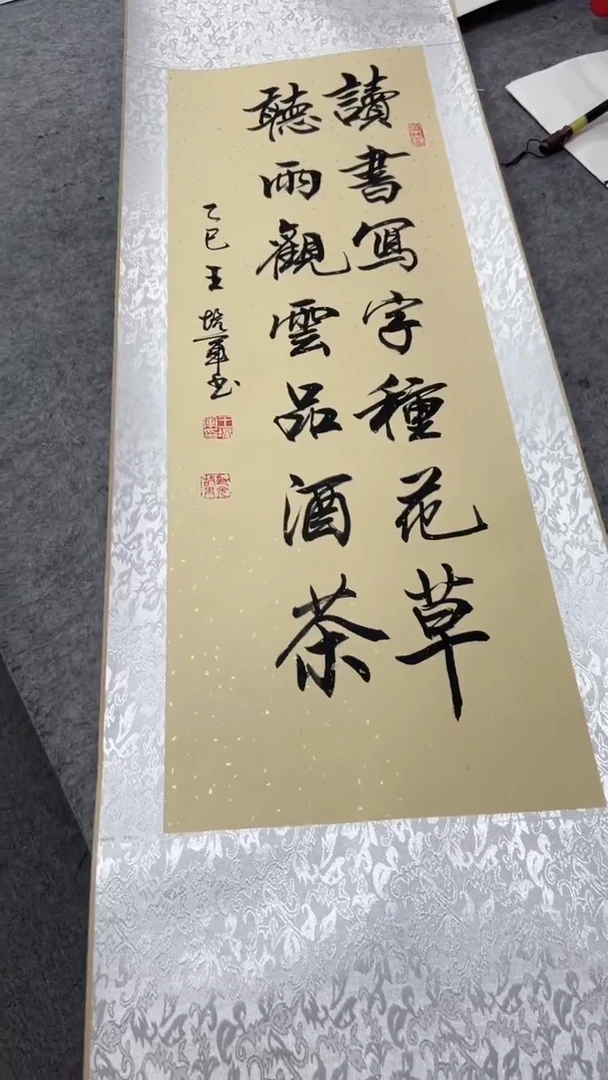 讀書寫字種花草
聽雨觀雲品酒茶
乙巳王培軍书